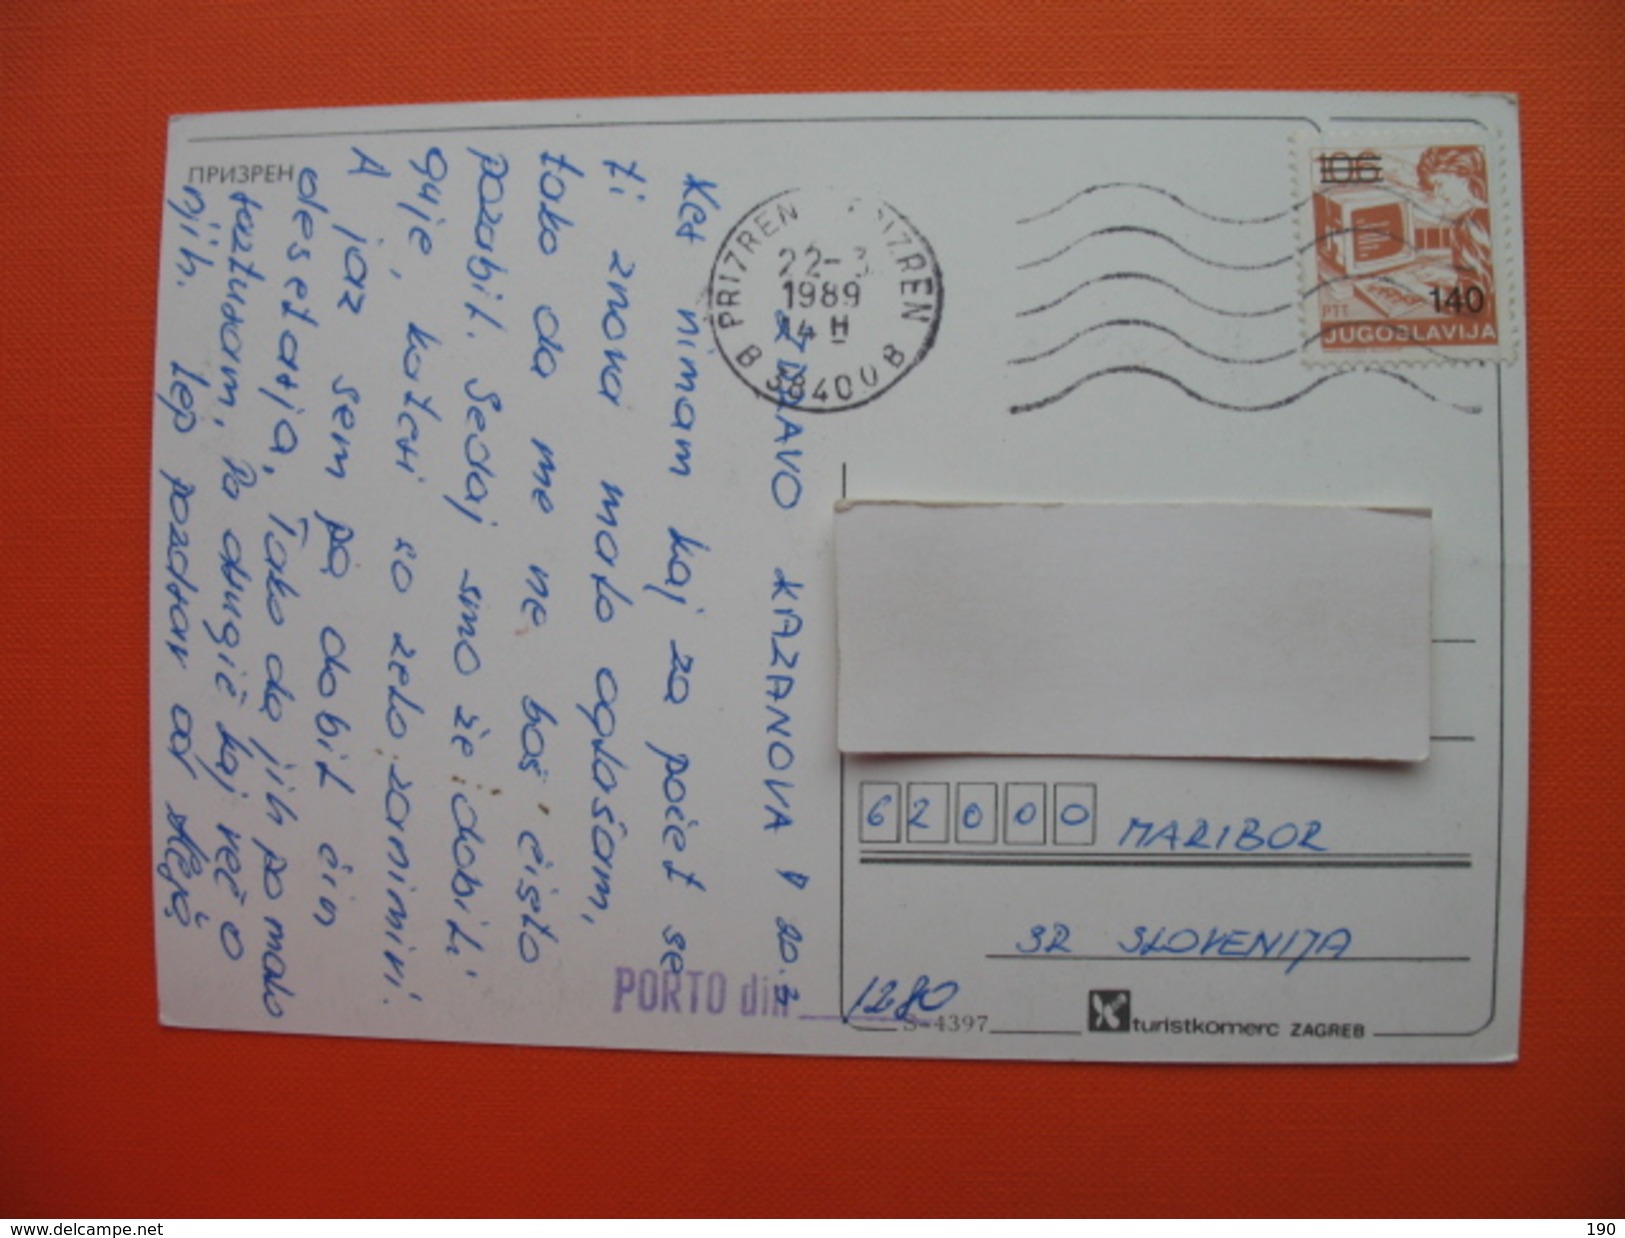 ПРИЗРЕН
ZDRAVO KAZANOVA! 20.3
Ker nimam kaj za počet se
ti znova malo oglašam,
tako da me ne boš čisto
pozabil. Sedaj smo že dobili
guje, kateri so zelo zanimivi.
A jaz sem pa dobil čin
desetarja, Tako da jih po malo
raztusam, Pa drugič kaj več o
njih. Lep pozdrav od
PRIZREN PRIZREN
22-3
1989
14 H
B 38400 B
106
140
PTT
JUGOSLAVIJA
62000 MARIBOR
SR SLOVENIJA
PORTO din 1280
S-4397
turistkomerc ZAGREB
www.delcampe.net
190